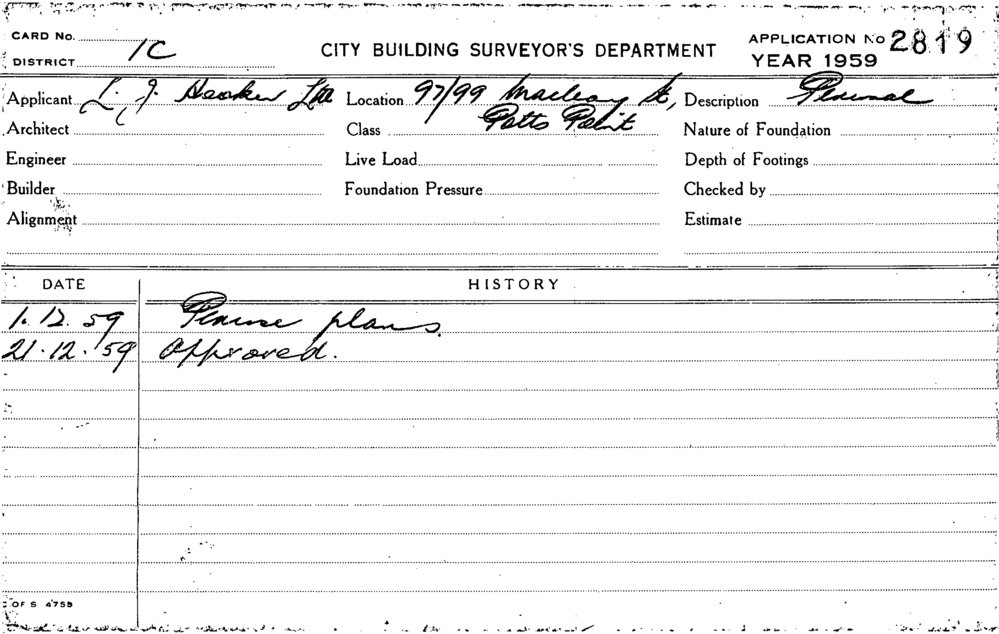 CARD No.
DISTRICT 1C
CITY BUILDING SURVEYOR'S DEPARTMENT
APPLICATION No 2819
YEAR 1959
Applicant L. J. Hooker Ltd Location 97/99 Macleay St, Description Perusal
Architect Class Potts Point Nature of Foundation
Engineer Live Load Depth of Footings
Builder Foundation Pressure Checked by
Alignment Estimate
DATE HISTORY
1.12.59 Peruse plans.
21.12.59 Approved.
C OF S 4759